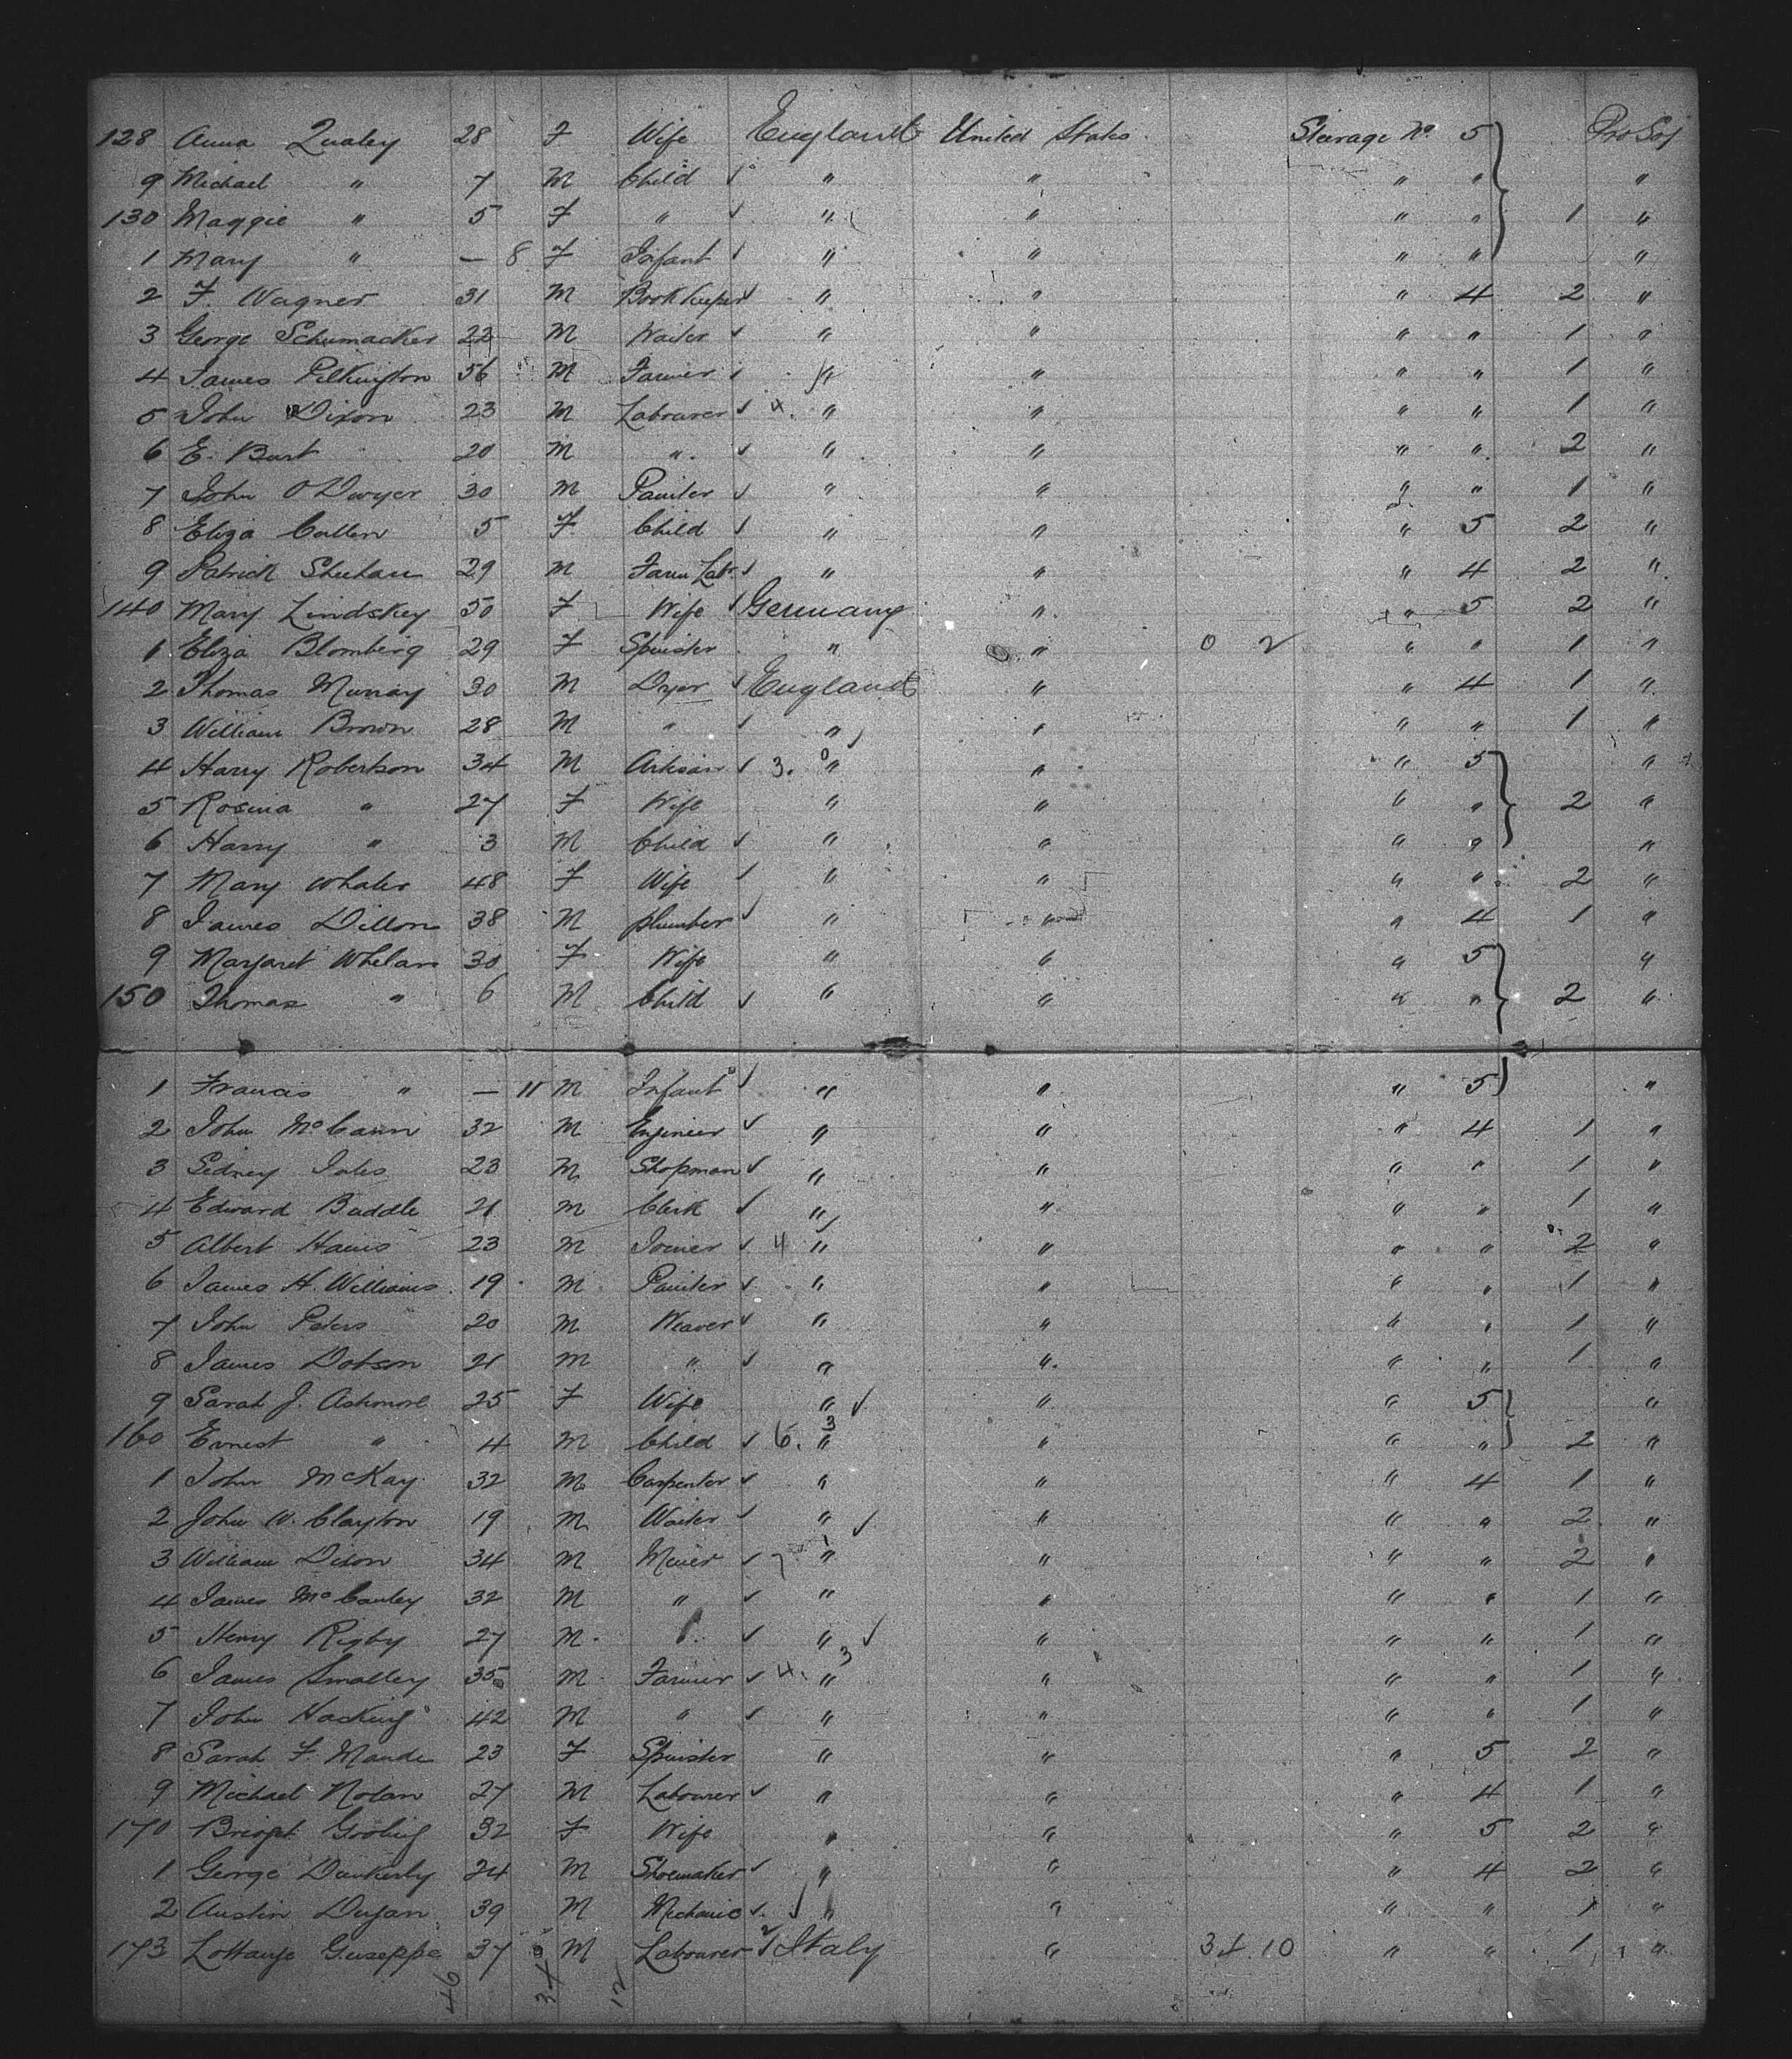 128 Anna Qualey 28 F Wife England United States Steerage No 5 Pro Soj
9 Michael " 7 M Child " " " " "
130 Maggie " 5 F " " " " " 1 "
1 Mary " — 8 F Infant " " " " "
2 F. Wagner 31 M Bookkeeper " " " 4 2 "
3 George Schumacker 22 M Waiter " " " " 1 "
4 James Pilkington 56 M Farmer " " " " 1 "
5 John Dixon 23 M Labourer 4. " " " " 1 "
6 E. Burt 20 M " " " " " 2 "
7 John O'Dwyer 30 M Painter " " " " 1 "
8 Eliza Cullen 5 F Child " " " 5 2 "
9 Patrick Sheehan 29 M Farm Labr. " " " 4 2 "
140 Mary Lindskey 50 F Wife Germany " " 5 2 "
1 Eliza Blomberg 29 F Spinster " " 0 2 " " 1 "
2 Thomas Murray 30 M Dyer England " " 4 1 "
3 William Brown 28 M " " " " " 1 "
4 Harry Robertson 34 M Artisan 3. 0 " " " 5 "
5 Rosina " 27 F Wife " " " " 2 "
6 Harry " 3 M Child " " " " "
7 Mary Whaler 48 F Wife " " " " 2 "
8 James Dillon 38 M plumber " " " 4 1 "
9 Margaret Whelan 30 F Wife " " " 5 "
150 Thomas " 6 M Child " " " " 2 "
1 Francis " — 11 M Infant " " " 5 "
2 John McCann 32 M Engineer " " " 4 1 "
3 Sidney 23 M Shopman " " " " 1 "
4 Edward Buddle 21 M Clerk " " " " 1 "
5 Albert 23 M Joiner 4 " " " " 2 "
6 James H. Williams 19 M Painter " " " " 1 "
7 John Peters 20 M Weaver " " " " 1 "
8 James Dobson 21 M " " " " " 1 "
9 Sarah J. Ashmore 25 F Wife " " " 5 "
160 Ernest " 4 M Child 6. 3 " " " " 2 "
1 John McKay 32 M Carpenter " " " 4 1 "
2 John W. Clayton 19 M Waiter " " " " 2 "
3 William 34 M Miner 7 1 " " " " 2 "
4 James McCauley 32 M " " " " " 1 "
5 Henry Rigby 27 M " " " " " 1 "
6 James Smalley 35 M Farmer 4. 3 " " " " 1 "
7 John Hacking 42 M " " " " " 1 "
8 Sarah F. Maude 23 F Spinster " " " 5 2 "
9 Michael Nolan 27 M Labourer " " " 4 1 "
170 Bridget 32 F Wife " " " 5 2 "
1 George Dunkerly 24 M Shoemaker " " " 4 2 "
2 Austin Dugan 39 M Mechanic " " " " 1 "
173 Guseppe 37 M Labourer Italy " 34.10 " " 1 "
46 34 12